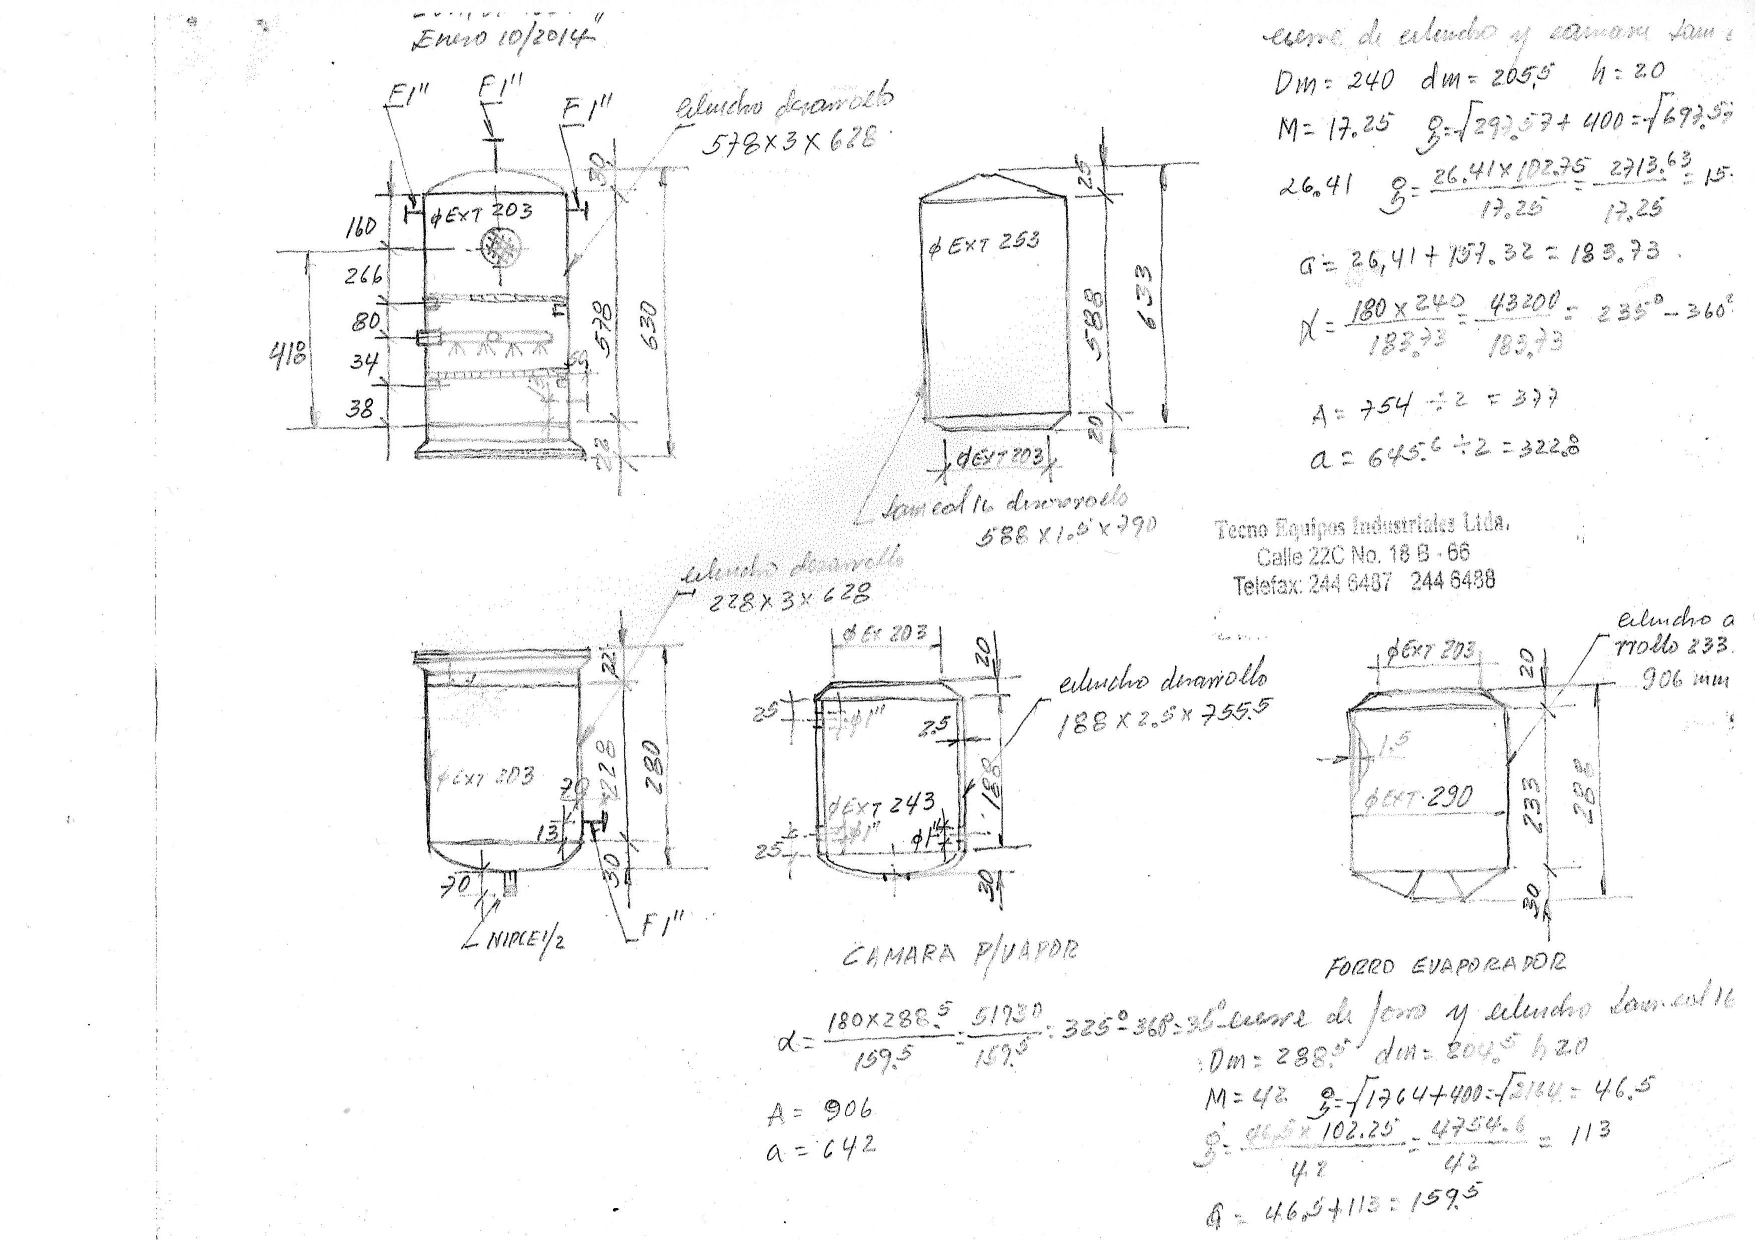 Enero 10/2014
F1"
F1"
F1"
cilindro desarrollo
578 x 3 x 628
30
φ EXT 203
160
266
80
34
38
418
578
630
50
13
22
25
φ EXT 253
588
633
20
φ EXT 203
Lam cal 16 desarrollo
588 x 1.5 x 790
cierre de cilindro y camara Lam
Dm = 240 dm = 205.5 h = 20
M = 17.25 g = √297.57 + 400 = √697.57
26.41 g = 26.41 x 102.75 / 17.25 = 2713.63 / 17.25 = 15
G = 26,41 + 157.32 = 183.73
α = 180 x 240 / 183.73 = 43200 / 183.73 = 235° - 360°
A = 754 ÷ 2 = 377
a = 645.6 ÷ 2 = 322.8
Tecno Equipos Industriales Ltda.
Calle 22C No. 18 B - 66
Telefax: 244 6487 244 6488
cilindro desarrollo
228 x 3 x 628
22
φ EXT 203
228
280
70
13
30
70
NIPLE 1/2
F1"
φ EX 203
20
cilindro desarrollo
188 x 2.5 x 755.5
25
φ1"
2.5
188
φ EXT 243
φ1"
φ1"
25
30
CAMARA P/VAPOR
cilindro
rrollo 233
906 mm
φ EXT 203
20
1.5
φ EXT 290
233
288
30
FORRO EVAPORADOR
α = 180 x 288.5 / 159.5 = 51930 / 159.5 = 325° - 360 = 35°
A = 906
a = 642
cierre de forro y cilindro Lam. cal 16
Dm = 288.5 dm = 204.5 h 20
M = 42 g = √1764 + 400 = √2164 = 46.5
g = 46.5 x 102.25 / 42 = 4754.6 / 42 = 113
G = 46.5 + 113 = 159.5